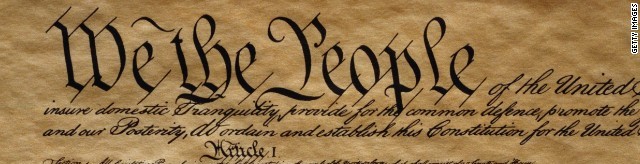 We the People of the United
insure domestic Tranquility, provide for the common defence, promote the
and our Posterity, do ordain and establish this Constitution for the United
Article I
GETTY IMAGES